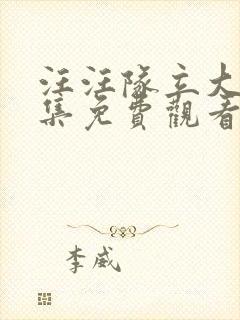 汪汪隊立大
集免費觀看
李威